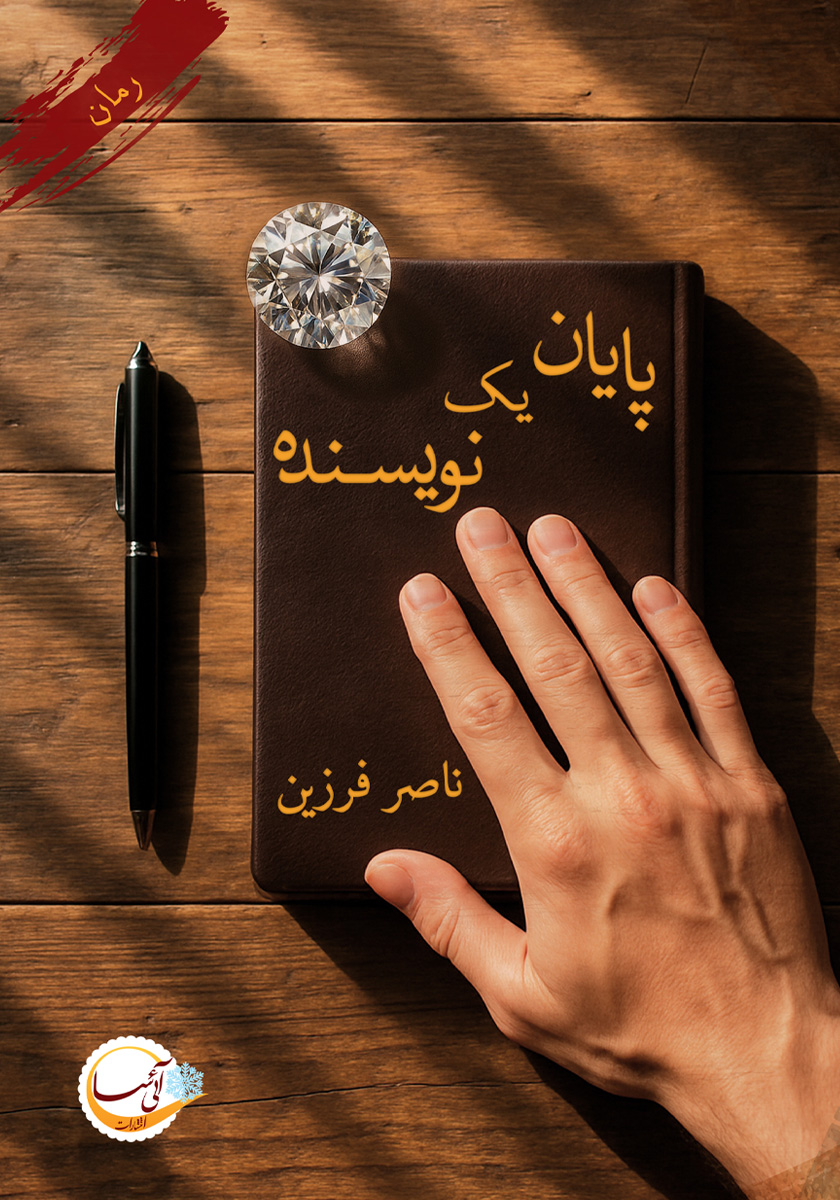 رمان
پایان
یک
نویسنده
ناصر فرزین
انتشارات